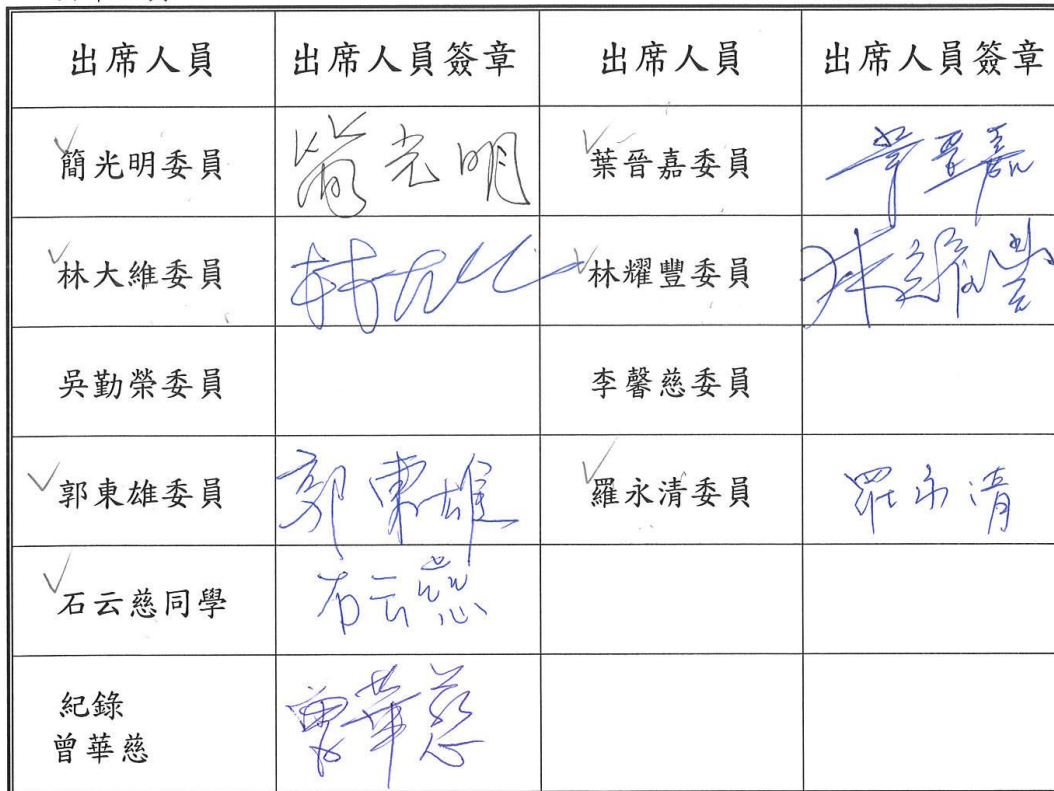 出席人員 出席人員簽章 出席人員 出席人員簽章
簡光明委員 簡光明 葉晉嘉委員 葉晉嘉
林大維委員 林大維 林耀豐委員 林耀豐
吳勤榮委員 李馨慈委員
郭東雄委員 郭東雄 羅永清委員 羅永清
石云慈同學 石云慈
紀錄
曾華慈 曾華慈